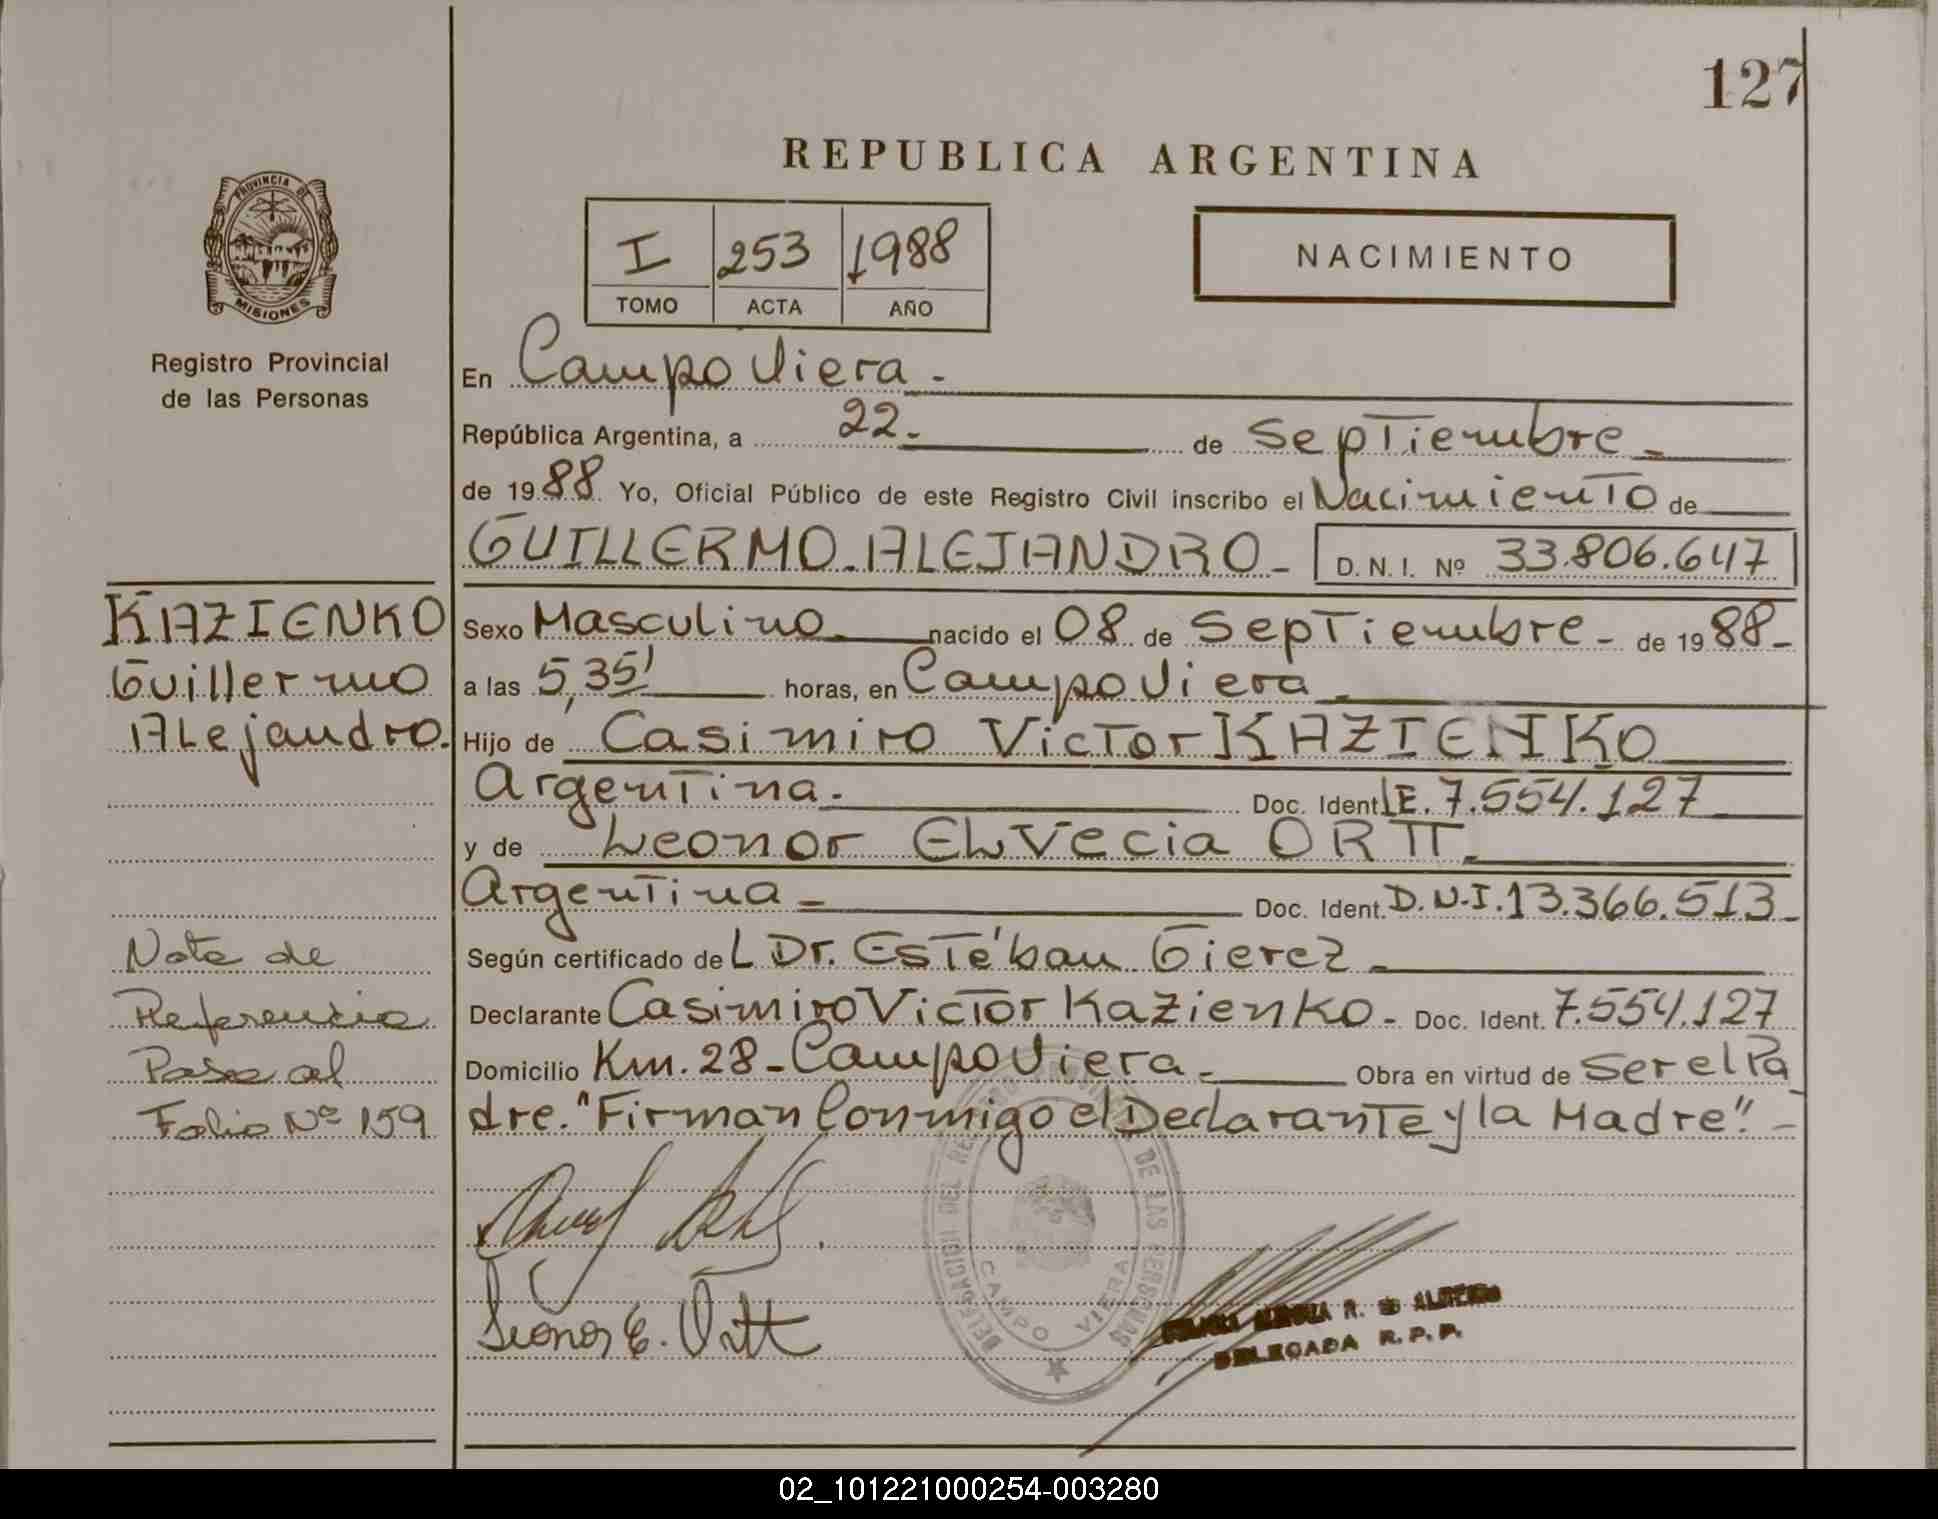 127
REPUBLICA ARGENTINA
PROVINCIA DE
MISIONES
Registro Provincial
de las Personas
I 253 1988
TOMO ACTA AÑO
NACIMIENTO
En Campo Viera -
República Argentina, a 22- de Septiembre -
de 1988. Yo, Oficial Público de este Registro Civil inscribo el Nacimiento de
GUILLERMO ALEJANDRO - D. N. I. Nº 33.806.647
KAZIENKO
Guillermo
Alejandro.
Sexo Masculino nacido el 08 de Septiembre - de 1988-
a las 5,35' horas, en Campo Viera -
Hijo de Casimiro Victor KAZIENKO
Argentina. Doc. Ident. LE. 7.554.127
y de Leonor ELVecia ORTT.
Argentina - Doc. Ident. D.N.I. 13.366.513-
Según certificado del Dr. Estéban Gierez -
Declarante Casimiro Victor Kazienko - Doc. Ident. 7.554.127
Domicilio Km. 28 - Campo Viera - Obra en virtud de Ser el Pa
dre. "Firman Conmigo el Declarante y la Madre". -
Nota de
Referencia
Pase al
Folio Nº 159
Leonor E. Ortt
DELEGACION DEL DE LAS PERSONAS
CAMPO VIERA
R. DE ALMEIDA
DELEGADA R. P. P.
02_101221000254-003280